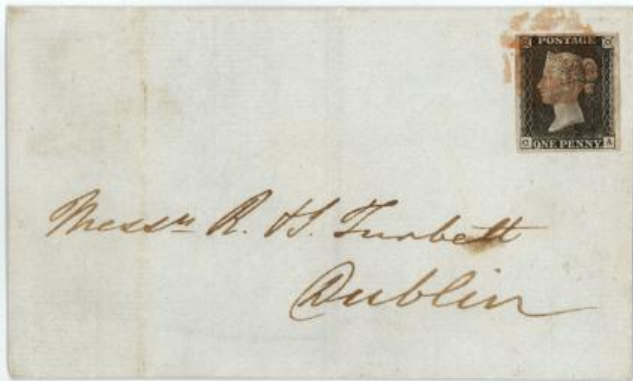 POSTAGE
ONE PENNY
Messrs R. & J. Turbett
Dublin